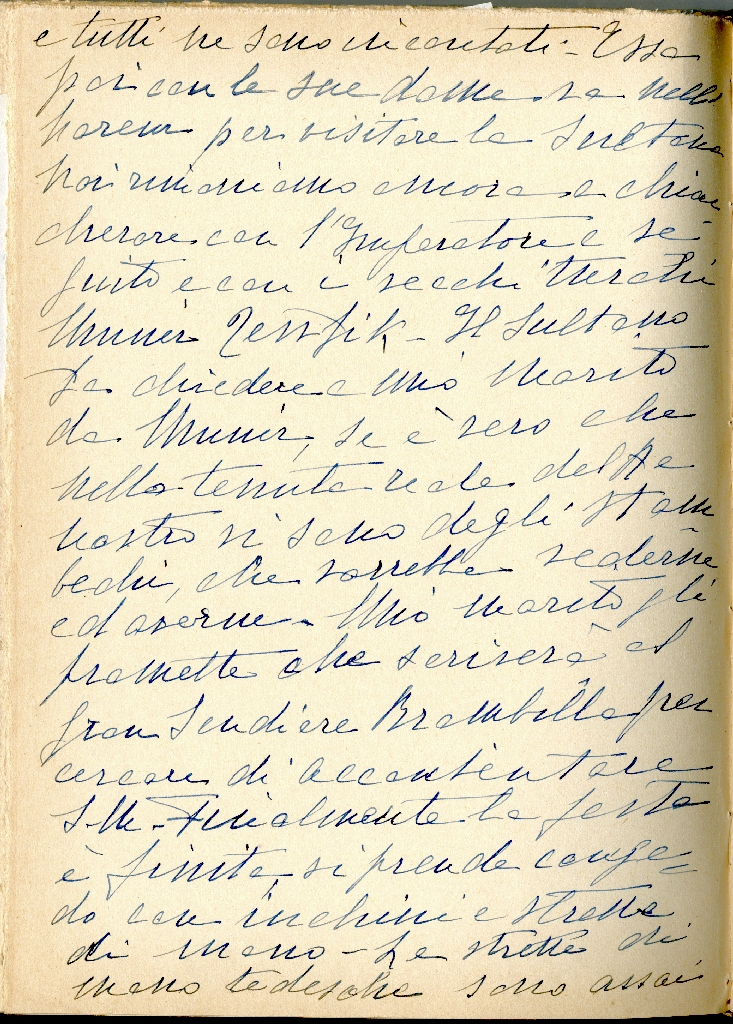 e tutti ne sono incantati - Essa
poi con le sue dame va nell'
harem per visitare la Sultana
noi rimaniamo ancora a chiac
cherare con l'Imperatore e sè
guito e con i vecchi Turchi
Munir Tewfik - Il Sultano
fa chiedere a mio marito
da Munir, se è vero che
nella tenuta reale del Re
nostro vi sono degli stam
bechi, che vorrebbe vederne
ed averne - Mio marito gli
promette che scriverà al
gran Scudiere Brambilla per
cercare di accontentare
S.M. - Finalmente la festa
è finita, si prende conge=
do con inchini e strette
di mano - Le strette di
mano tedesche sono assai